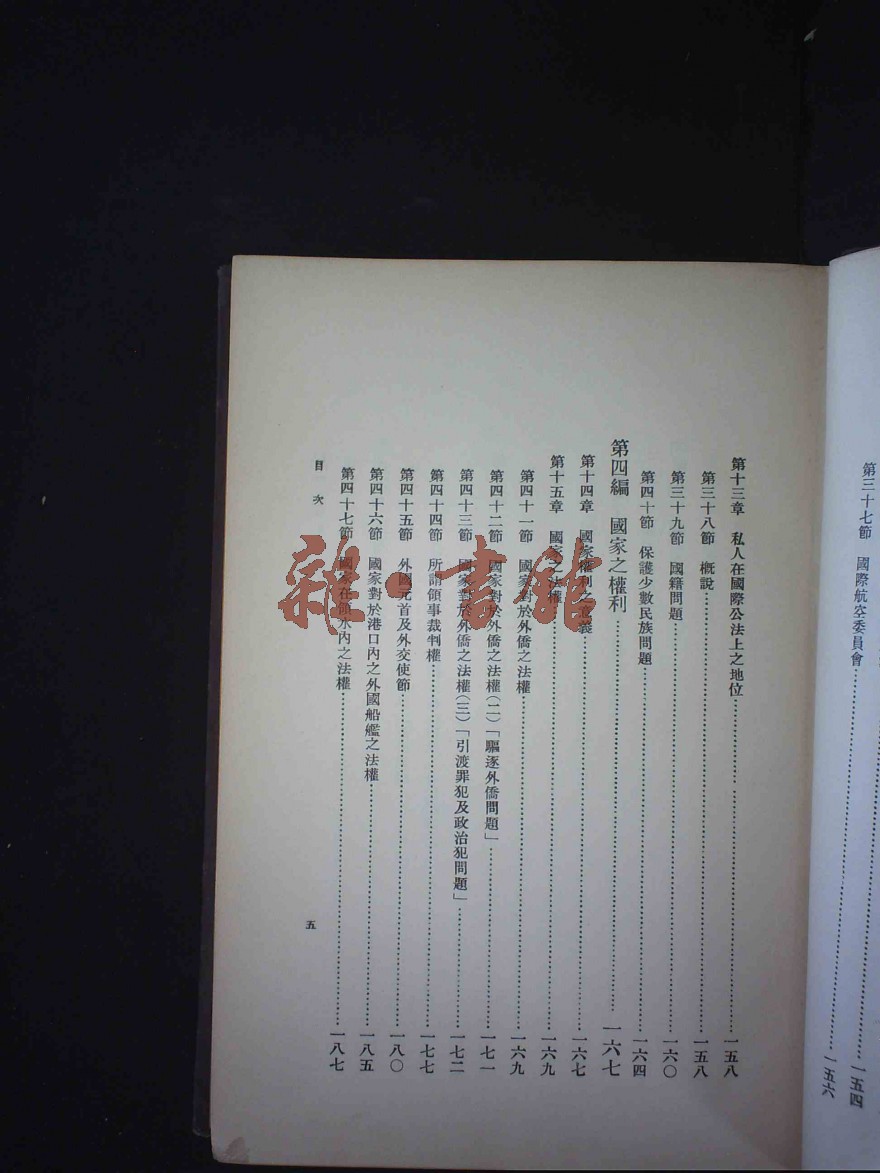 第三十七節　國際航空委員會……一五四
……一五六
第十三章　私人在國際公法上之地位……一五八
第三十八節　概說……一五八
第三十九節　國籍問題……一六〇
第四十節　保護少數民族問題……一六四
第四編　國家之權利……一六七
第十四章　國家權利之意義……一六七
第十五章　國家之法權……一六九
第四十一節　國家對於外僑之法權……一六九
第四十二節　國家對於外僑之法權（二）「驅逐外僑問題」……一七一
第四十三節　國家對於外僑之法權（三）「引渡罪犯及政治犯問題」……一七二
第四十四節　所謂領事裁判權……一七七
第四十五節　外國元首及外交使節……一八〇
第四十六節　國家對於港口內之外國船艦之法權……一八五
第四十七節　國家在領水內之法權……一八七
目次
五
雜·書館